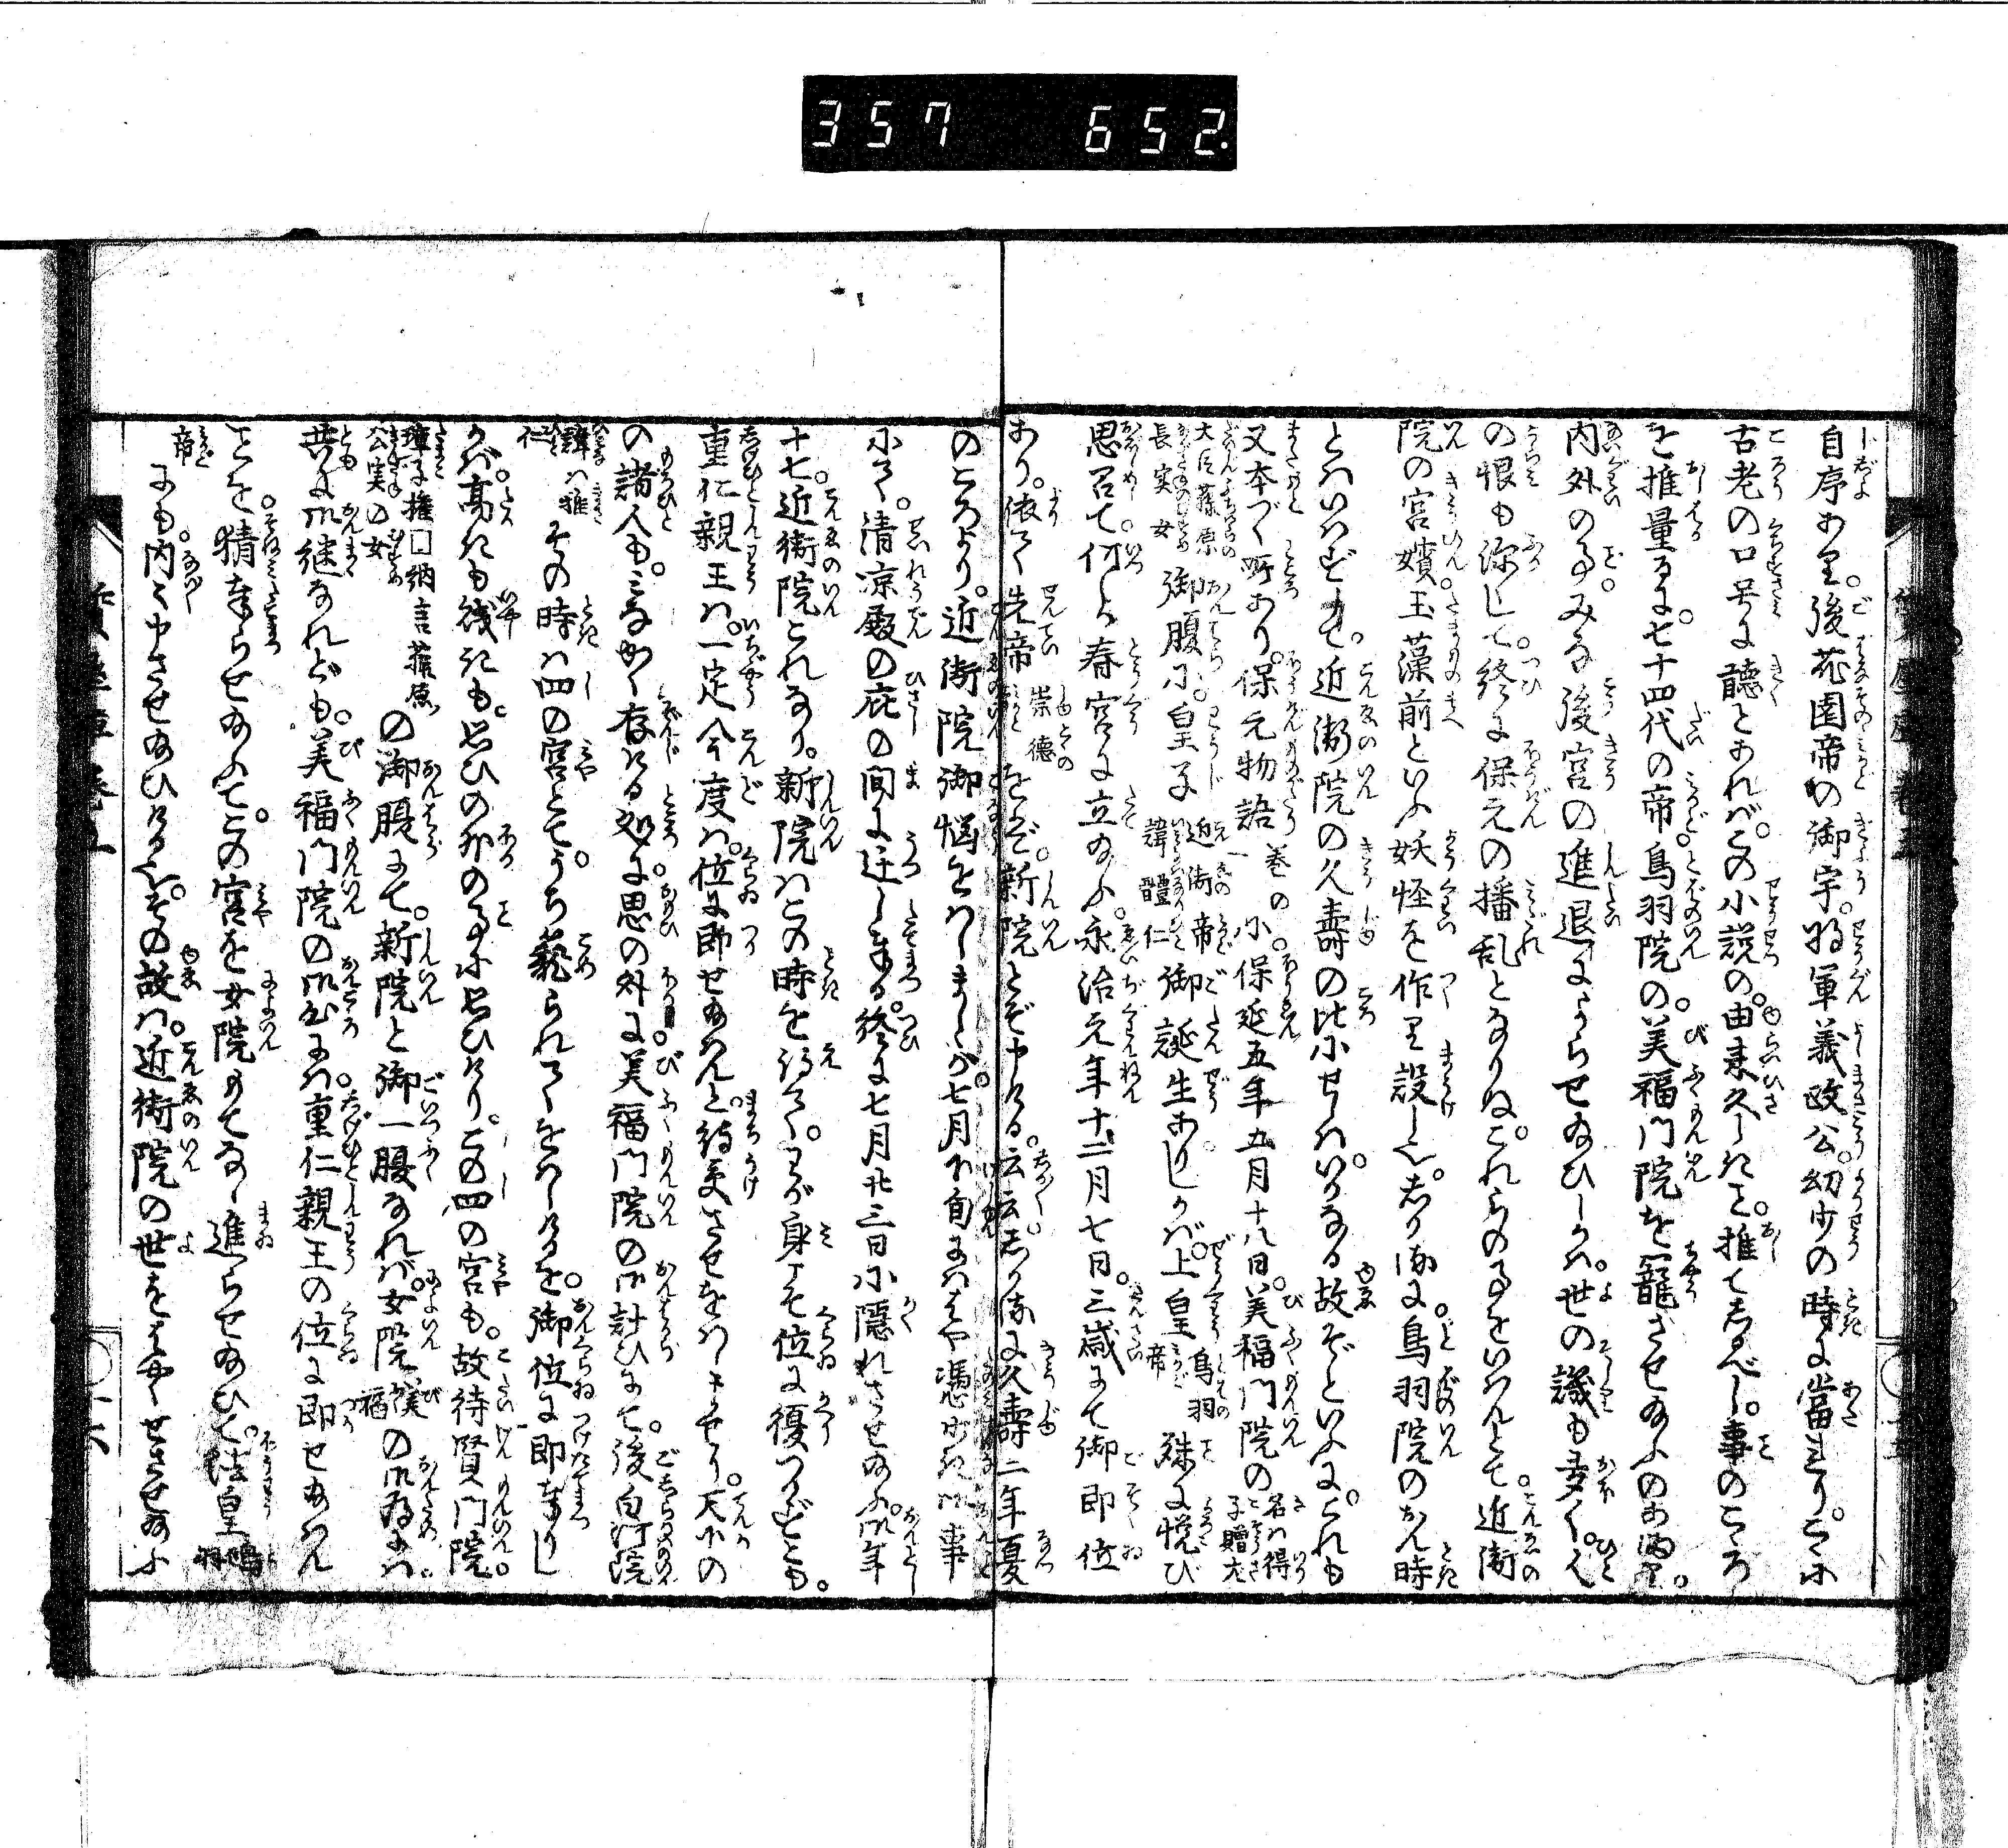 357 652.
自序あり。後花園帝の御宇。将軍義政公。幼少の時に當れり。こゝに
古老の口号に聽とあれば。この小説の。由来久しきこと。推てしるべし。事のこゝろ
を推量るに。七十四代の帝。鳥羽院の。美福門院を寵させ給ふのあまり。
内外の事。みな後宮の進退によらせ給ひしかは。世の譏も多く。人
の恨も深して。終に保元の播乱となりぬ。これらの事をいはんとて。近衛
院の宮嬪。玉藻前といふ妖怪を作り設し也。しかるに。鳥羽院のおん時
とはいはずして。近衛院の久壽の比にせしは。いかなる故ぞといふに。これも
又本づく所あり。保元物語一巻のに。保延五年五月十八日。美福門院の名は得子贈左
大臣藤原長実女御腹に。皇子近衛帝諱體仁御誕生ありしかば。上皇鳥羽帝殊に悦び
思召て。何しか春宮に立給ふ。永治元年十二月七日。三歳にて御即位
あり。依て先帝崇徳をぞ。新院とぞ申ける。云云しかるに久壽二年夏
のころより。近衛院御悩をはしましゝが。七月下旬にははや憑少き御事
にて。清凉殿の庇の間に迁し奉る。終に七月廿三日に隠れさせ給ふ。御年
十七。近衛院これなり。新院はこの時を得て。わが身こそ位に復つがずとも。
重仁親王は。一定今度は。位に即せ給はんと。待受させをはしませり。天下の
の諸人も。みなかく存ける処に。思の外に。美福門院の御計ひにて。後白河院
諱は雅仁その時は四の宮とて。うち籠られてをはしけるを。御位に即奉りし
かば。高きも賎きも。思ひの外の事に思ひけり。この四の宮も。故待賢門院。
璋子権□納言藤原公実の女の御腹にて。新院と御一腹なれば。女院美福の御為には
共に御継なれども。美福門院の御心には。重仁親王の位に即せ給はん
ことを。猜奉らせ給ふて。この宮を女院もてなし進らせ給ひて。法皇鳥羽
帝にも。内々申させ給ひける也。その故は。近衛院の世をはやくせさせ給ふ